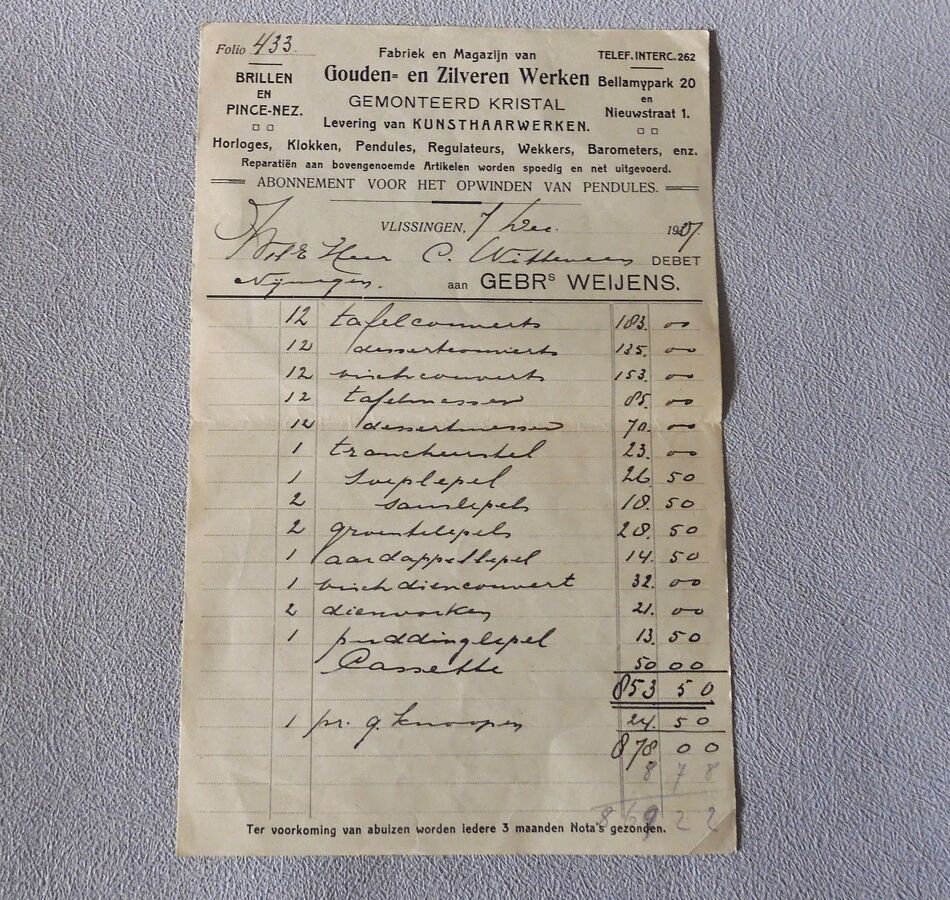 Folio 433.
Fabriek en Magazijn van
TELEF. INTERC. 262
BRILLEN
EN
PINCE-NEZ.
Gouden= en Zilveren Werken
Bellamypark 20
en
Nieuwstraat 1.
GEMONTEERD KRISTAL
Levering van KUNSTHAARWERKEN.
Horloges, Klokken, Pendules, Regulateurs, Wekkers, Barometers, enz.
Reparatiën aan bovengenoemde Artikelen worden spoedig en net uitgevoerd.
ABONNEMENT VOOR HET OPWINDEN VAN PENDULES.
VLISSINGEN, 7 Dec. 19
Heer C. Witteveen DEBET
Nijmegen. aan GEBRS WEIJENS.
12 tafelcouverts 183. 00
12 dessertcouverts 135. 00
12 vischcouverts 153. 00
12 tafelmessen 85. 00
12 dessertmessen 70. 00
1 trancheerstel 23. 00
1 soeplepel 26 50
2 sauslepels 18. 50
2 groentelepels 28. 50
1 aardappellepel 14. 50
1 visch diencouvert 32. 00
2 dienvorken 21. 00
1 puddinglepel 13. 50
Cassette 50 00
853 50
1 pr. g. knoopen 24. 50
878 00
8 78
869 22
Ter voorkoming van abuizen worden iedere 3 maanden Nota's gezonden.